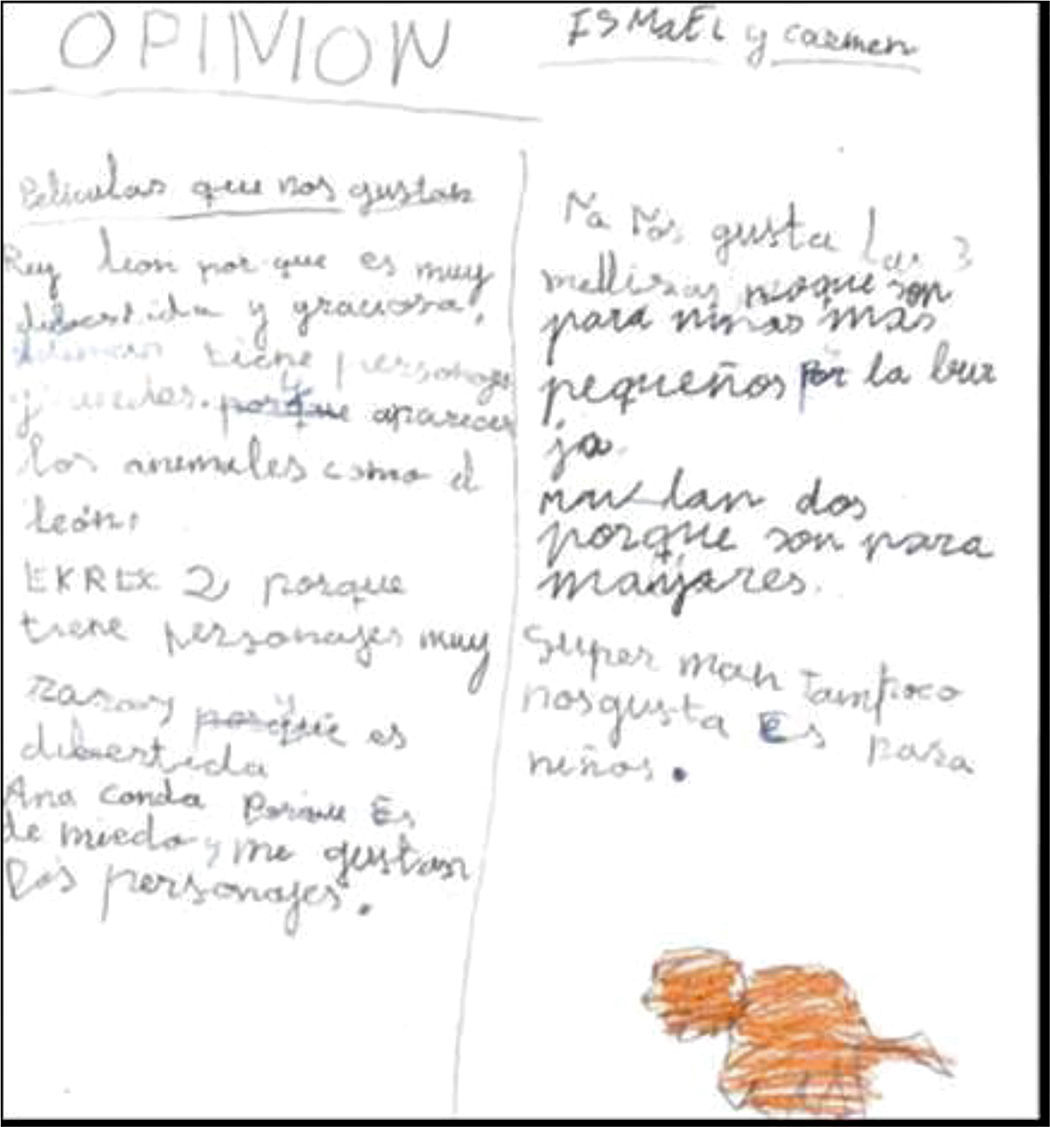 OPINION
ISMaEL y carmen
Peliculas que nos gustan
Rey leon por que es muy
dibertida y graciosa,
tiene personajes
porque y aparecen
los animales como el
león,
EKREK 2 porque
tiene personajes muy
raros y porque y es
dibertida
Ana conda Porque Es
de miedo y me gustan
los personajes.
No Nos gusta las 3
mellizas poque son
para ninas mas
pequeños por y la bru
ja.
mu lan dos
porque son para
manjares.
Super man Tampoco
nos gusta Es para
niños.